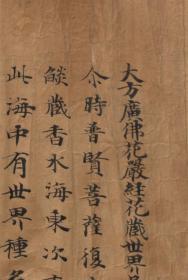 大方廣佛花嚴經花藏世界
尒時普賢菩薩復
燄藏香水海東次
此海中有世界種名